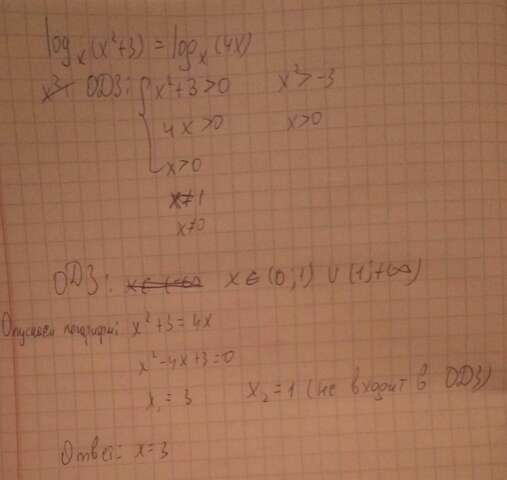 log_x(x²+3) = log_x(4x)
ОДЗ: { x²+3>0 x²>-3
4x>0 x>0
x>0
x≠1
x≠0
ОДЗ: x ∈ (0;1) ∪ (1;+∞)
Опускаем логарифмы: x²+3=4x
x²-4x+3=0
x₁=3 x₂=1 (не входит в ОДЗ)
Ответ: x=3